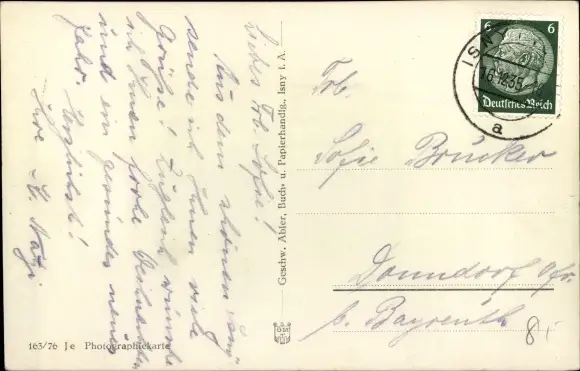 Liebes Frl. Sofie!
Aus dem schönen Isny
sende ich Ihnen viele
Grüße! Zugleich wünsche
ich Ihnen frohe Weihnachten
und ein gesundes neues
Jahr. Herzlichst!
Ihre
Geschw. Abler, Buch- u. Papierhandlg., Isny i. A.
163/76 Je Photographiekarte
6 6
Deutsches Reich
ISNY
a
Frl.
Sofie Brücker
Donndorf Ofr.
b. Bayreuth
8,-